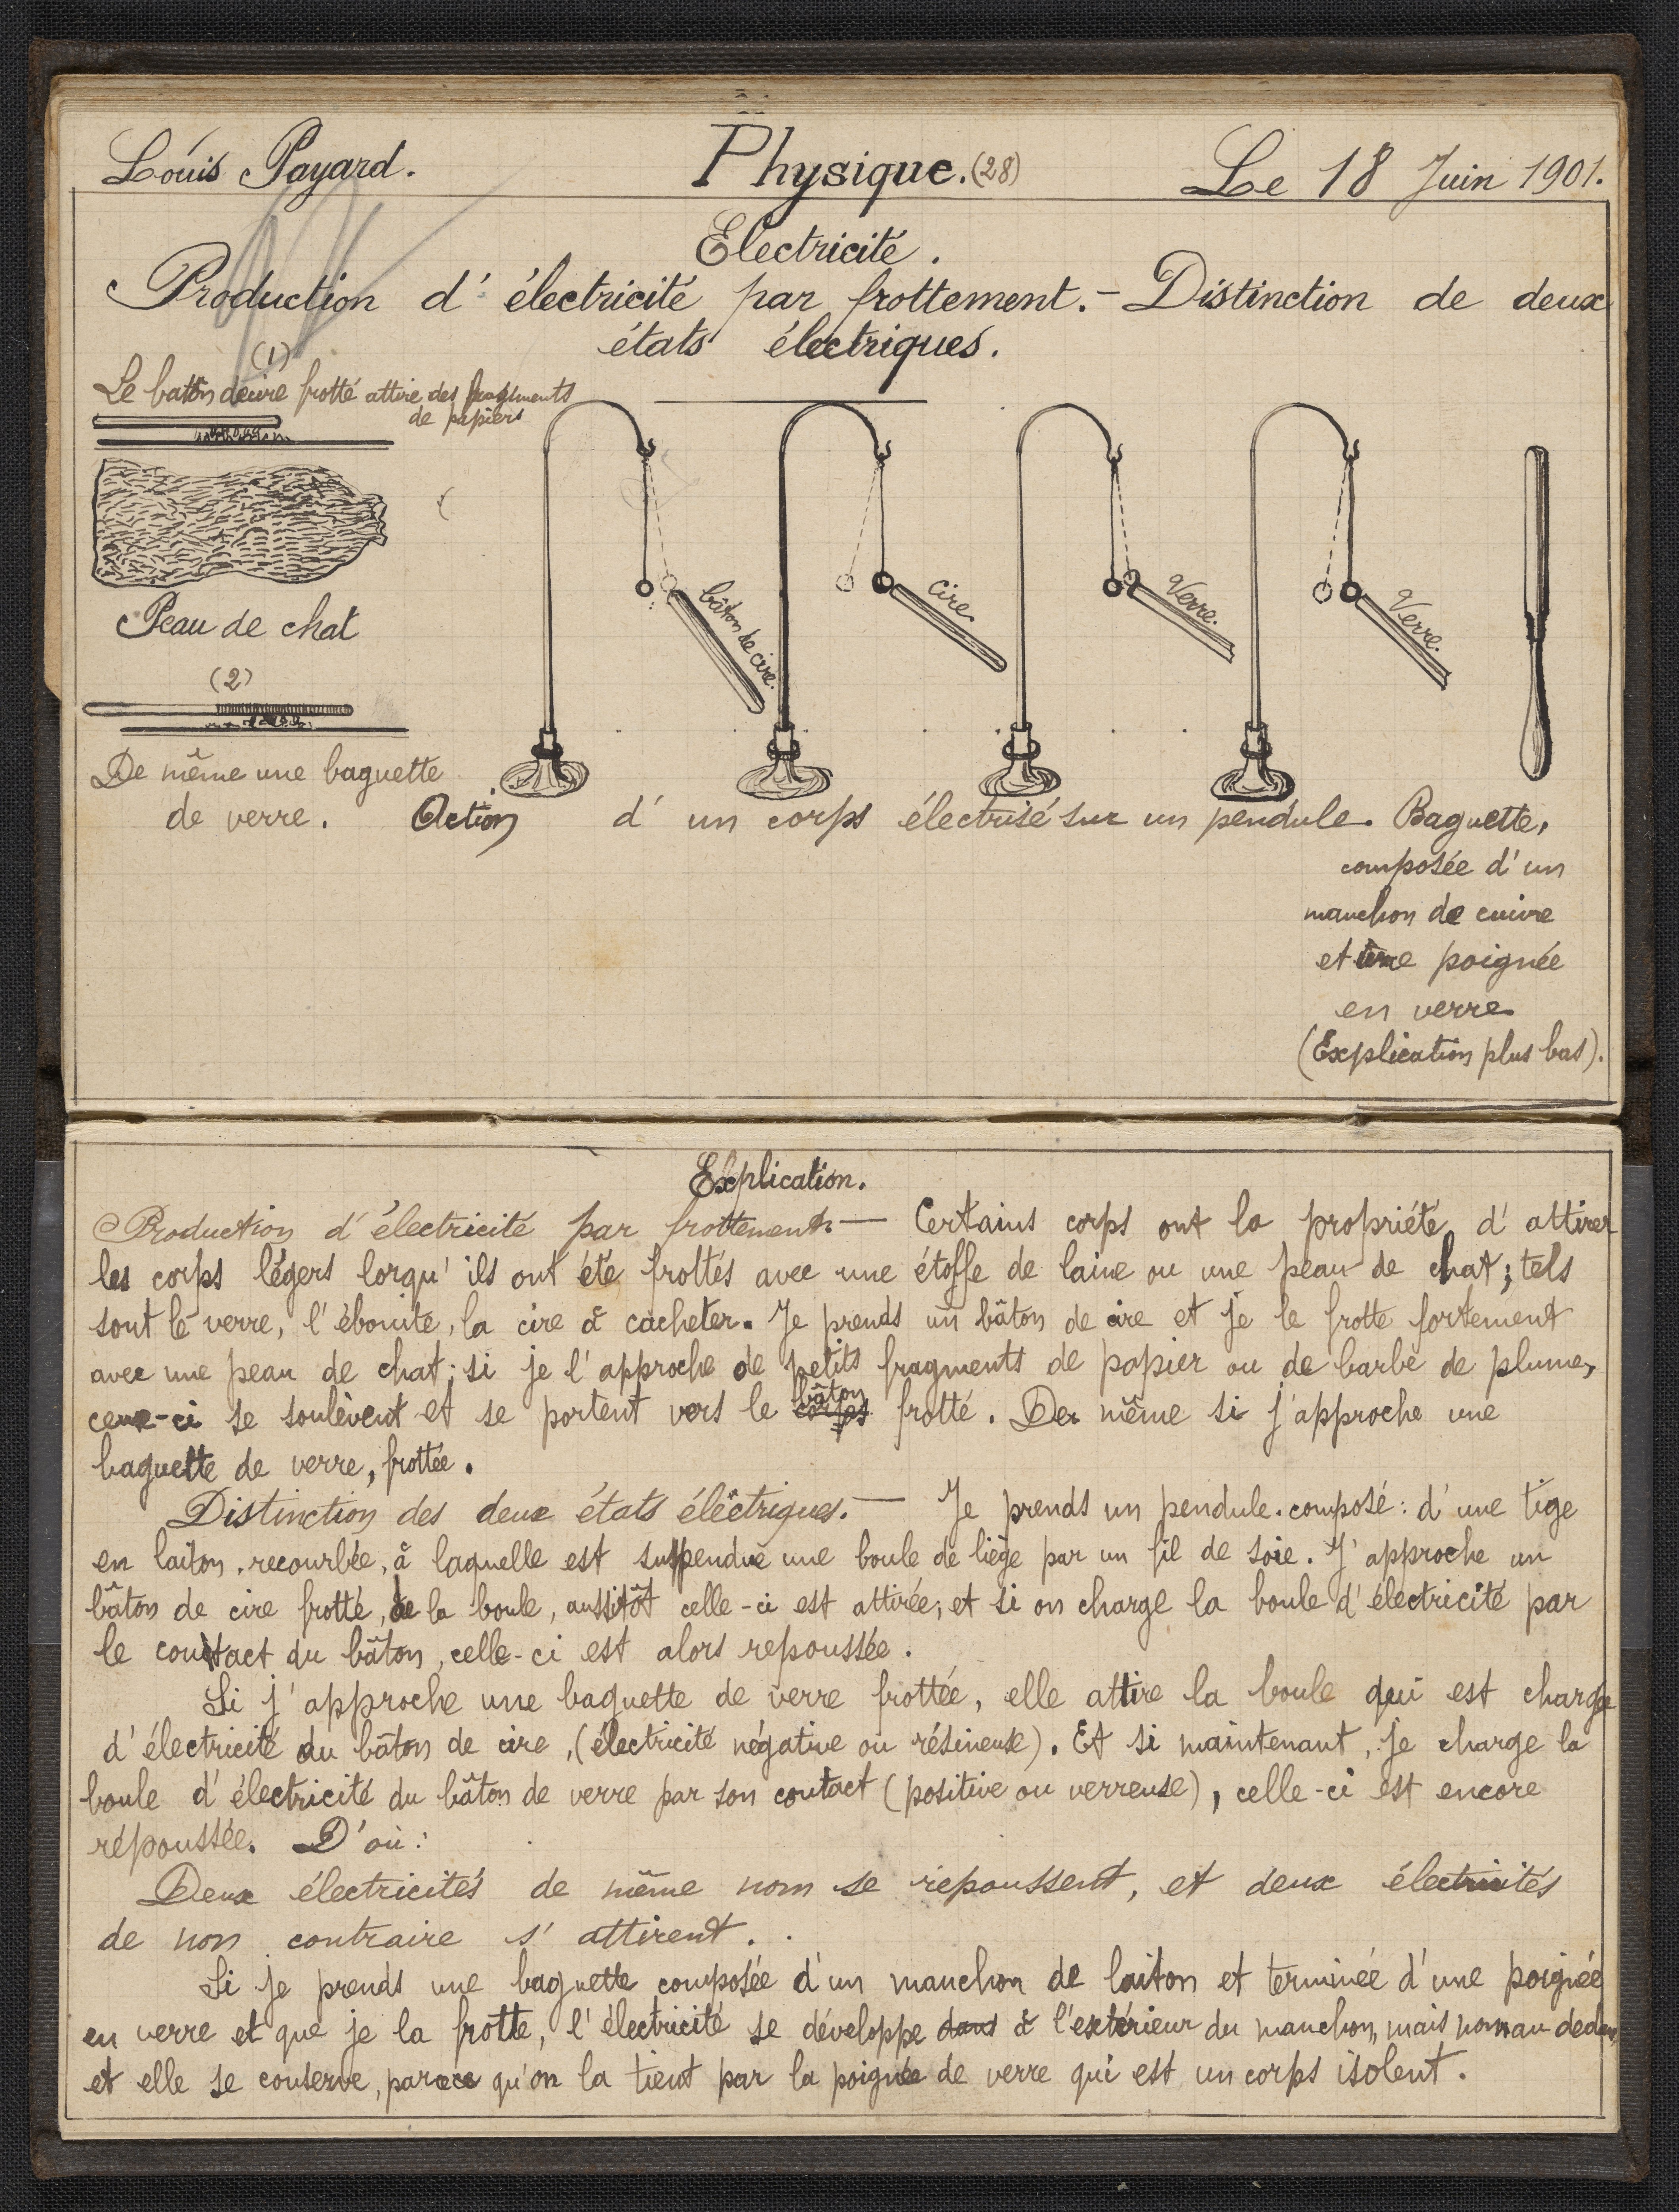 Louis Payard.
Physique. (28)
Le 18 Juin 1901.
Electricité.
Production d'électricité par frottement. - Distinction de deux
états électriques.
(1)
Le bâton de cire frotté attire des fragments
de papiers
Peau de chat
(2)
De même une baguette
de verre.
bâton de cire.
cire.
Verre.
Verre.
Action d'un corps électrisé sur un pendule.
Baguette,
composée d'un
manchon de cuivre
et une poignée
en verre
(Explication plus bas).
Explication.
Production d'électricité par frottement. — Certains corps ont la propriété d'attirer
les corps légers lorqu'ils ont été frottés avec une étoffe de laine ou une peau de chat; tels
sont le verre, l'ébonite, la cire à cacheter. Je prends un bâton de cire et je le frotte fortement
avec une peau de chat; si je l'approche de petits fragments de papier ou de barbe de plume,
ceux-ci se soulèvent et se portent vers le corps bâton frotté. De même si j'approche une
baguette de verre, frottée.
Distinction des deux états éléctriques. — Je prends un pendule composé: d'une tige
en laiton, recourbée, à laquelle est suspendue une boule de liège par un fil de soie. J'approche un
bâton de cire frotté, de la boule, aussitôt celle-ci est attirée; et si on charge la boule d'électricité par
le contact du bâton, celle-ci est alors repoussée.
Si j'approche une baguette de verre frottée, elle attire la boule qui est charge
d'électricité du bâton de cire, (électricité négative ou résineuse). Et si maintenant, je charge la
boule d'électricité du bâton de verre par son contact (positive ou verreuse), celle-ci est encore
répoussée. D'où:
Deux électricités de même nom se répoussent, et deux électricités
de non contraire s'attirent.
Si je prends une baguette composée d'un manchon de laiton et terminée d'une poignée
en verre et que je la frotte, l'électricité se développe dans à l'extérieur du manchon, mais non au dedans,
et elle se conserve, parce qu'on la tient par la poignée de verre qui est un corps isolent.